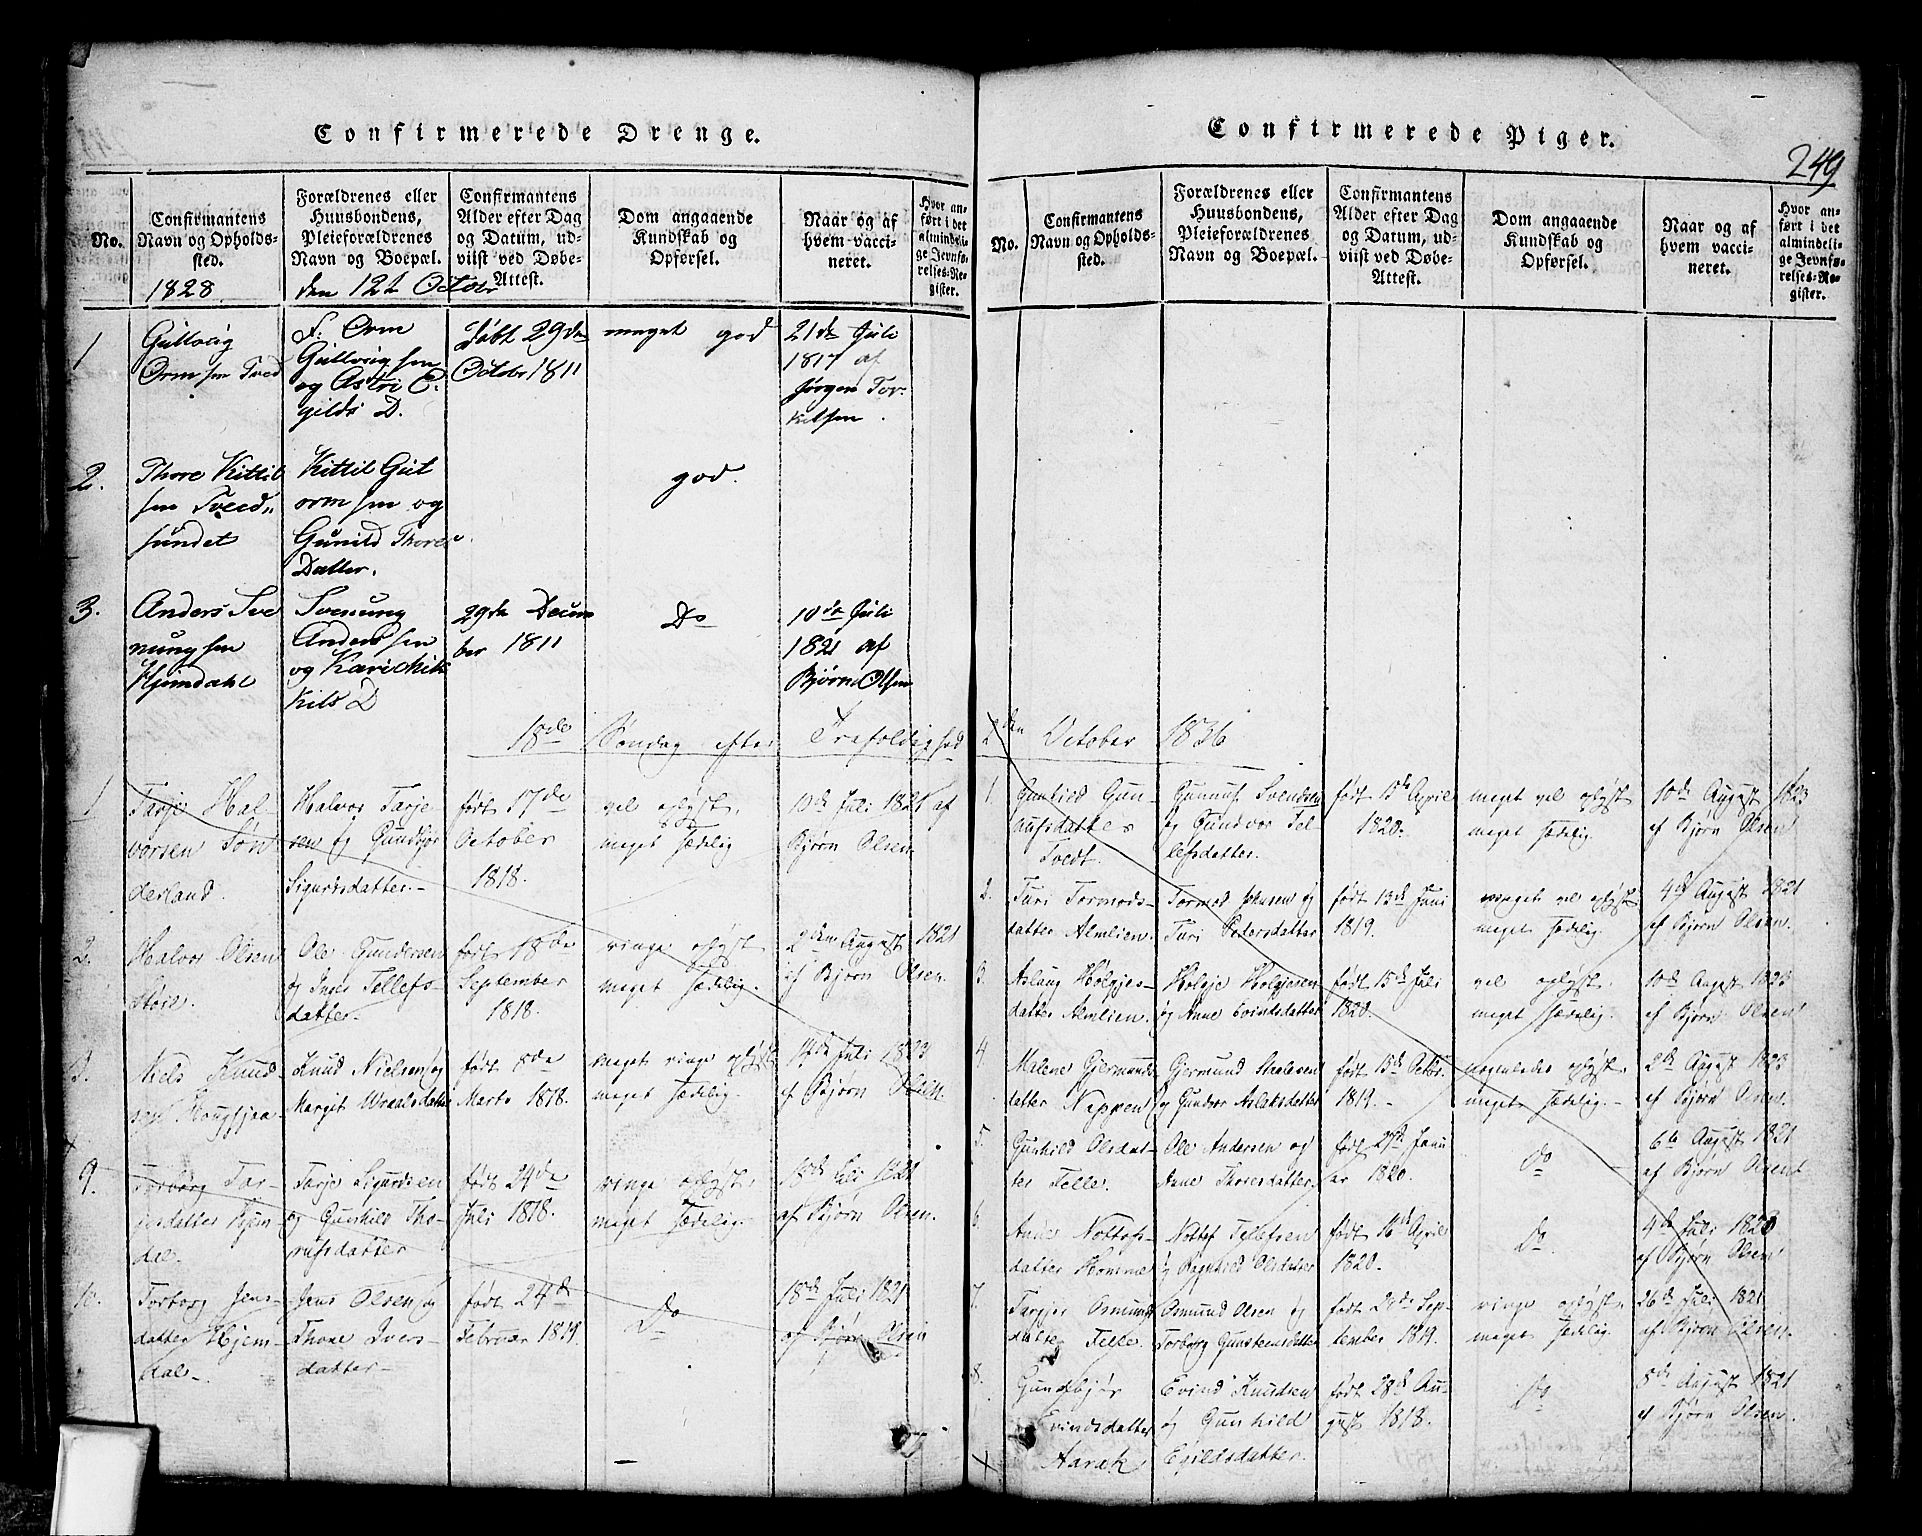 Confirmerede Drenge.
No.
Confirmantens
Navn og Opholds-
sted.
Forældrenes eller
Huusbondens,
Pleieforældrenes
Navn og Boepæl.
Confirmantens
Alder efter Dag
og Datum, ud-
viist ved Døbe-
Attest.
Dom angaaende
Kundskab og
Opførsel.
Naar og af
hvem vacci-
neret.
Hvor an-
ført i det
almindeli-
ge Jevnfø-
relses-Re-
gister.
1828 den 12t Octobr
1
Guttorm
Ormsen Tved
F. Orm
og Astri E.
gilds D.
født 29de
Octobr 1811
meget god
21de Juli
1817 af
Jørgen Tor-
kilsen.
2.
Thore Kittil
sen Tveed-
sundet
Kittil Gut
ormsen og
Gunild Thores
Datter.
god.
3.
Anders Sve
nungsen
Hjemdahl
Svenung
Anderssen
og Kari
Kils D
29de Decem
ber 1811
Do
10de Juli
1821 af
Bjørn Olsen
18de Søndag efter Trefoldighed
1
Tarje Hal-
vorsen Søn
derland.
Halvor Tarje
sen og Gundbjør
Sigurdsdatter.
født 17de
October
1818.
vel oplyst,
meget sædelig
10de Juli 1821 af
Bjørn Olsen.
2.
Halvor Olsen
Ole Gundersen
og Inger Tellefs-
datter.
født 18de
September
1818.
ringe oplyst
meget sædelig.
2den August 1821
af Bjørn Olsen.
3.
Niels Knud-
sen
Knud Nielsen og
Margit Wraalsdatter
født 8de
Marts 1818.
meget ringe oplyst
meget sædelig.
14de Juli 1823
af Bjørn Olsen.
9.
Torborg Tar-
jesdatter Hjem-
dal.
Tarje Sigurdsen
og Gunhild Tho-
datter
født 24de
Juli 1818.
ringe oplyst
meget sædelig.
18de Juli 1821
af Bjørn Olsen.
10.
Torborg Jens-
datter Hjem-
dal.
Jens Olsen og
Thone Ivers-
datter
født 24de
Februar 1819.
Do
18de Juli 1821
af Bjørn Olsen
Confirmerede Piger.
249
No.
Confirmantens
Navn og Opholds-
sted.
Forældrenes eller
Huusbondens,
Pleieforældrenes
Navn og Boepæl.
Confirmantens
Alder efter Dag
og Datum, ud-
viist ved Døbe-
Attest.
Dom angaaende
Kundskab og
Opførsel.
Naar og af
hvem vacci-
neret.
Hvor an-
ført i det
almindeli-
ge Jevnfø-
relses-Re-
gister.
2den October 1836
1.
Gunhild Gun-
nufsdatter
Tvedt.
Gunnuf Svendsen
og Gundvor Tel-
lefsdatter.
født 15de April
1820.
meget vel oplyst
meget sædelig.
10de August 1823
af Bjørn Olsen
2.
Turi Tormods-
datter Almlien.
Tormod Johnsen og
Turi Pedersdatter
født 13de Juni
1819.
meget vel oplyst
meget sædelig.
4de August 1821
af Bjørn Olsen.
3.
Aslaug Holgjes-
datter Almlien.
Holgje Holgjesen
og Anne Evindsdatter
født 15de Juli
1820.
vel oplyst.
meget sædelig.
10de August 1823
af Bjørn Olsen
4.
Malene Gjermunds
datter Neppen
Gjermund
og Gundvor Aslaksdatter
født 15de Octbr.
1819.
nogenledes oplyst
meget sædelig.
8de August 1823
af Bjørn Olsen.
5.
Gunhild Olsdat-
ter Felle.
Ole Andersen og
Anne Thoresdatter.
født 27de Janu
ar 1820.
Do
6te August 1821
af Bjørn Olsen
6.
Anne Nottofs-
datter Homme
Nottof Tellefsen
og Ragnhild Olsdatter
født 16de April
1820.
Do
4de Juli 1823
af Bjørn Olsen
7.
Targjer Osmunds
datter Felle.
Osmund Olsen og
Torborg Gunsteensdatter
født 29de Sep-
tember 1819.
ringe oplyst
meget sædelig.
26de Juli 1821
af Bjørn Olsen.
8.
Gundbjør
Evindsdatter
Aarak
Evind Knudsen
og Gunhild
Egildsdatter.
født 28de Au-
gust 1818.
Do
8de August 1821
af Bjørn Olsen.